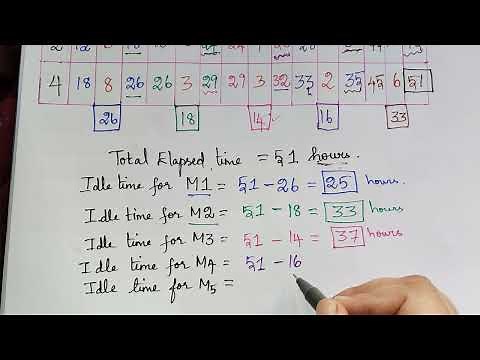 4 18 8 26 26 3 29 29 3 32 33 2 35 45 6 51
26 18 14 16 33
Total Elapsed time = 51 hours.
Idle time for M1 = 51 - 26 = 25 hours.
Idle time for M2 = 51 - 18 = 33 hours
Idle time for M3 = 51 - 14 = 37 hours
Idle time for M4 = 51 - 16
Idle time for M5 =